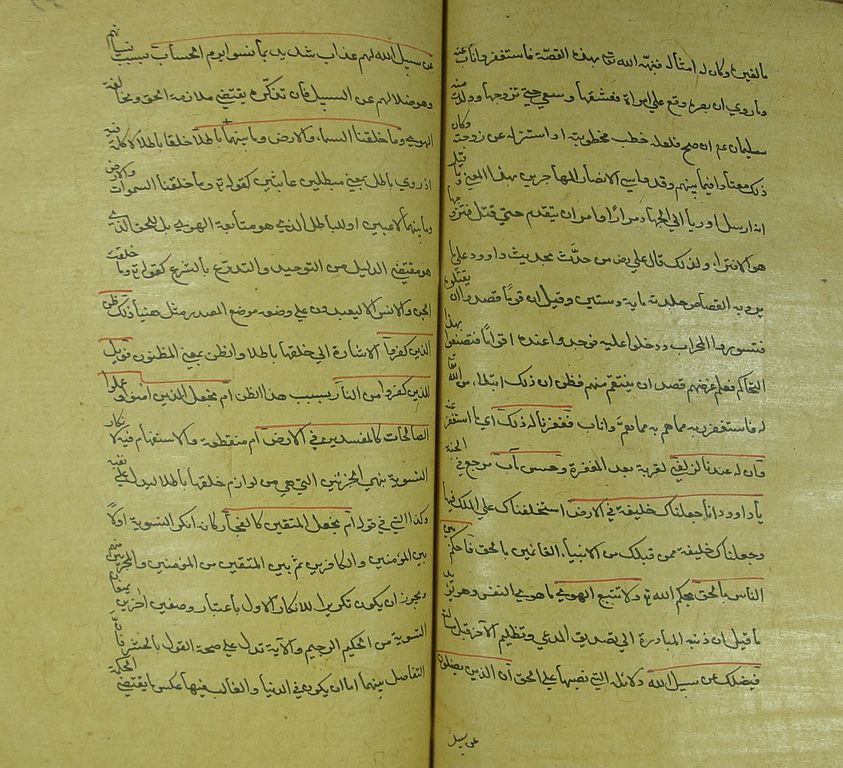 مالفين وكان له امثاله فنبهه الله تعالى بهذه القصة فاستغفر واناب عنه
وما روي ان بصره وقع على امراة فعشقها وسعى حتى تزوجها وولدت منه
سليمان عم ان صح فلعله خطب مخطوبته او استنزله عن زوجته وكان
ذلك معتادا فيما بينهم وقد واسى الانصار المهاجرين بهذا المعنى وما قيل
انه ارسل اوريا الى الجهاد مرارا وامر ان يتقدم حتى قتل فتزوجها
هو الا افتراء ولذلك قال علي رض من حدث بحديث داوود على ما
يرويه القصاص جلدته ماية وستين وقيل ان قوما قصدوا ان يقتلوه
فتسوروا المحراب ودخلوا عليه فوجدوا عنده اقواما فتصنعوا بهذا
التحاكم فعلم غرضهم قصد ان ينتقم منهم فظن ان ذلك ابتلاء من الله تع
له فاستغفر ربه مما هم به مما هم واناب فغفرنا له ذلك اي ما استغفر عنه
وان له عندنا لزلفى لقربة بعد المغفرة وحسن مآب مرجع في الجنة
يا داوود انا جعلناك خليفة في الارض استخلفناك على الملك فيها
وجعلناك خليفة ممن قبلك من الانبياء القائمين بالحق فاحكم بين
الناس بالحق بحكم الله ولا تتبع الهوى ما هوى النفس وهو يؤيد
ما قيل ان ذنبه المبادرة الى تصديق المدعي وتظليم الاخر قبل مسالته
فيضلك عن سبيل الله دلائله التي نصبها على الحق ان الذين يضلون
عن سبيل
عن سبيل الله لهم عذاب شديد بما نسوا يوم الحساب بسبب نسيانهم
وهو ضلالهم عن السبيل فان تذكره يقتضي ملازمة الحق ومخالفة
الهوى وما خلقنا السماء والارض وما بينهما باطلا خلقا باطلا لا حكمة فيه
او ذوي باطل بمعنى مبطلين عابثين كقوله وما خلقنا السموات والارض
وما بينهما لاعبين او للباطل الذي هو متابعة الهوى بل للحق الذي
هو مقتضى الدليل من التوحيد والتدرع بالشرع كقوله وما خلقت
الجن والانس الا ليعبدون على وضعه موضع المصدر مثل هنيئا ذلك ظن
الذين كفروا الاشارة الى خلقها باطلا والظن بمعنى المظنون فويل
للذين كفروا من النار بسبب هذا الظن ام نجعل الذين امنوا وعملوا
الصالحات كالمفسدين في الارض ام منقطعة والاستفهام فيه لانكار
التسوية بين الحزبين التي هي من لوازم خلقها باطلا ليدل على نفيه
وكذا التي في قوله ام نجعل المتقين كالفجار كانه انكر التسوية اولا
بين المؤمنين والكافرين ثم بين المتقين من المؤمنين والمجرمين منهم
ويجوز ان يكون تكريرا للانكار الاول باعتبار وصفين اخرين يمنعان
التسوية من الحكيم الرحيم والآية تدل على صحة القول بالحشر فان
التفاضل بينهما اما ان يكون في الدنيا والغالب فيها عكس ما يقتضي الحكمة